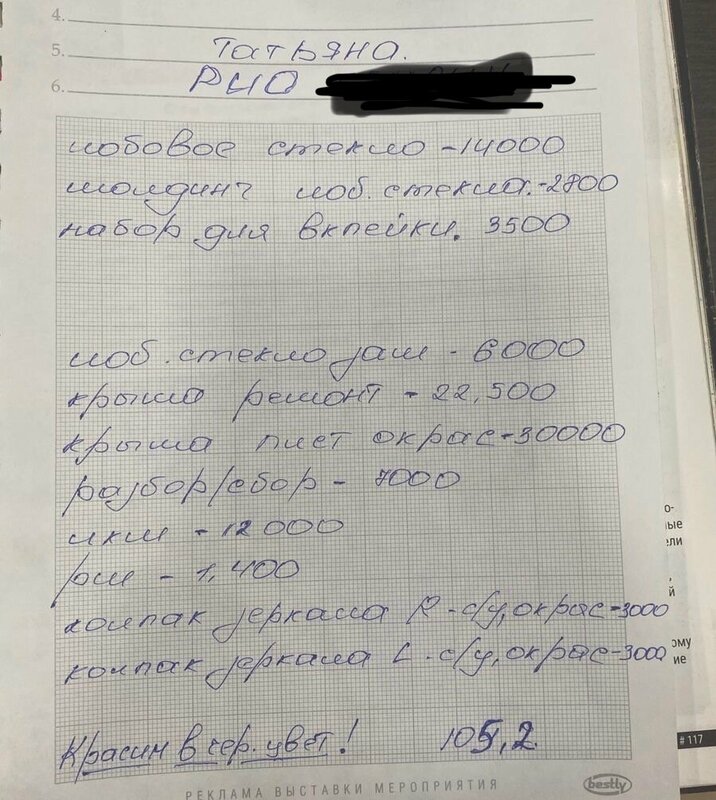 4.
5. Татьяна.
6. РИО
лобовое стекло -14000
молдинг лоб. стекла.-2800
набор для вклейки. 3500
лоб. стекло зам - 6000
крыша ремонт - 22,500
крыша лист окрас-30000
разбор/сбор - 7000
лкм - 12000
рм - 1,400
колпак зеркала R - с/у, окрас-3000
колпак зеркала L - с/у, окрас-3000
Красим в чер. цвет! 105,2
РЕКЛАМА ВЫСТАВКИ МЕРОПРИЯТИЯ bestly
# 117